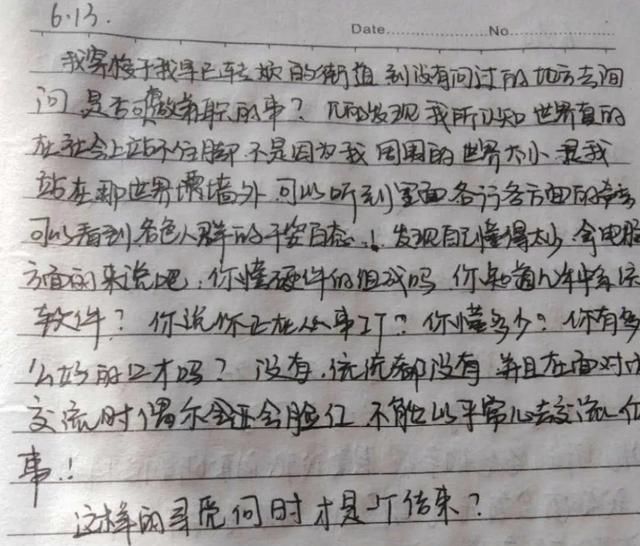 6.13.
Date No
我穿梭于我早已转熟的街道 到没有问过的地方去询
问 是否可做兼职的事? 发现我所认知世界真的
在社会上站不住脚 不是因为我周围的世界太小 是我
站在那世界墙外 可以听到里面各行各方面的
可以看到各色人群的千姿百态.! 发现自己懂得太少 会电脑
方面的来说吧. 你懂硬件的组成吗 你知道
软件? 你说你正在从事IT? 你懂多少? 你有多
么好的口才吗? 没有. 统统都没有 并且在面对
交流时偶尔会还会脸红 不能以平常心去交流
事.!
这样的寻觅何时才是个结束?